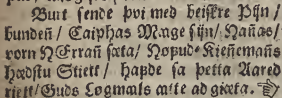 Burt sende þoi med beiskre Pijn /
bunden / Caiphas Mæge sijn / Nañas /
vorn HErrañ sæta / Hofud-Kieñemañs
hædstu Stiett / hafde sa þetta Aared
riett / Guds Logmals ætte ad giæta. ☞